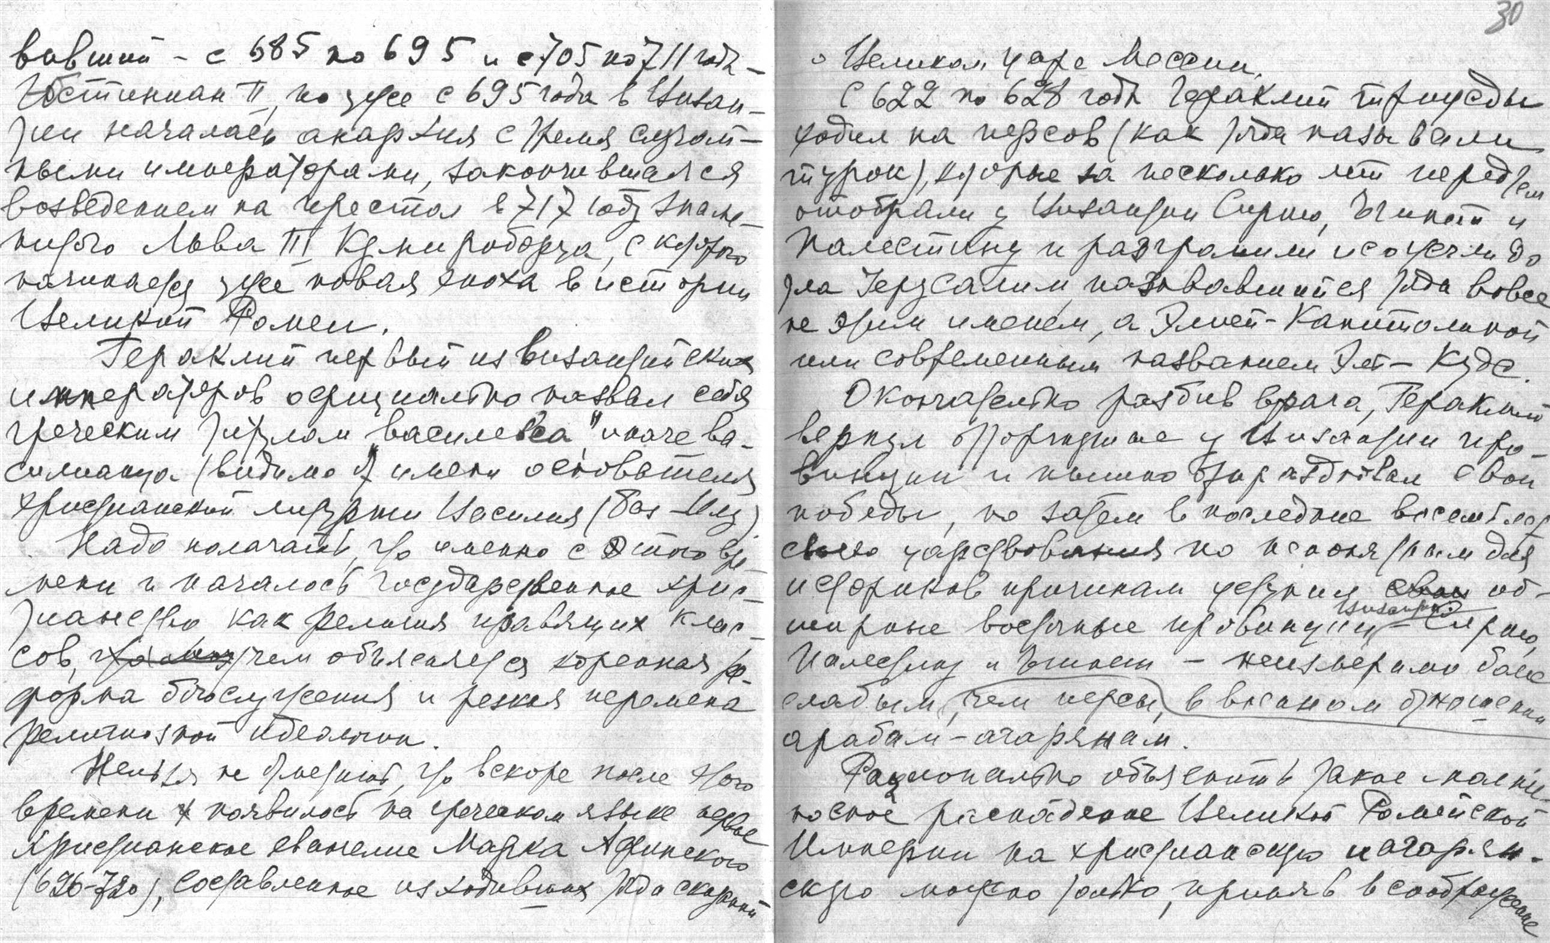 вавший – с 685 по 695 и с 705 по 711 годъ –
Юстиниан II, но уже с 695 года в Визан-
тии началась анархия с тремя случай-
ными императорами, закончившаяся
возведением на престол в 717 году знаме-
нитого Льва III Кумироборца, с которого
начинается уже новая эпоха в истории
Великой Ромеи.
Гераклий первый из византийских
императоров официально назвал себя
греческим титулом василевса, иначе ва-
(видимо от имени основателя
христианской литургии Василия
Надо полагать, что именно с этого вре-
мени и началось государственное хрис-
тианство как религия правящих клас-
сов, чем объясняется коренная ре-
форма богослужения и резкая перемена
религиозной идеологии.
Нельзя не отметить, что вскоре после этого
времени и появилось на греческом языке первое
христианское евангелие Марка Афинского
составленное из ходивших тогда сказаний
30
о Великом царе Мессии.
С 622 по 628 годъ Гераклий трижды
ходил на персов (как тогда называли
турок), которые за несколько лет перед тем
отобрали у Византии Сирию, Египет и
Палестину и разгромили и сожгли до
тла Иерусалим, называвшийся тогда вовсе
не этим именем, а Элией-Капитолиной
или современным названием Эль-Кудс.
Окончательно разбив врага, Гераклий
вернул отторгнутые у Византии про-
винции и пышно отпраздновал свои
победы, но затем в последние восемь лет
своего царствования по непонятным для
историков причинам уступил свои об-
ширные восточные провинции – Сирию,
Византии
Палестину и Египет – неизмеримо более
слабым, чем персы, в военном отношении
арабам-агарянам.
Рационально объяснить такое молние-
носное распадение Великой Ромейской
Империи на христианскую и агарян-
скую можно только, приняв в соображение